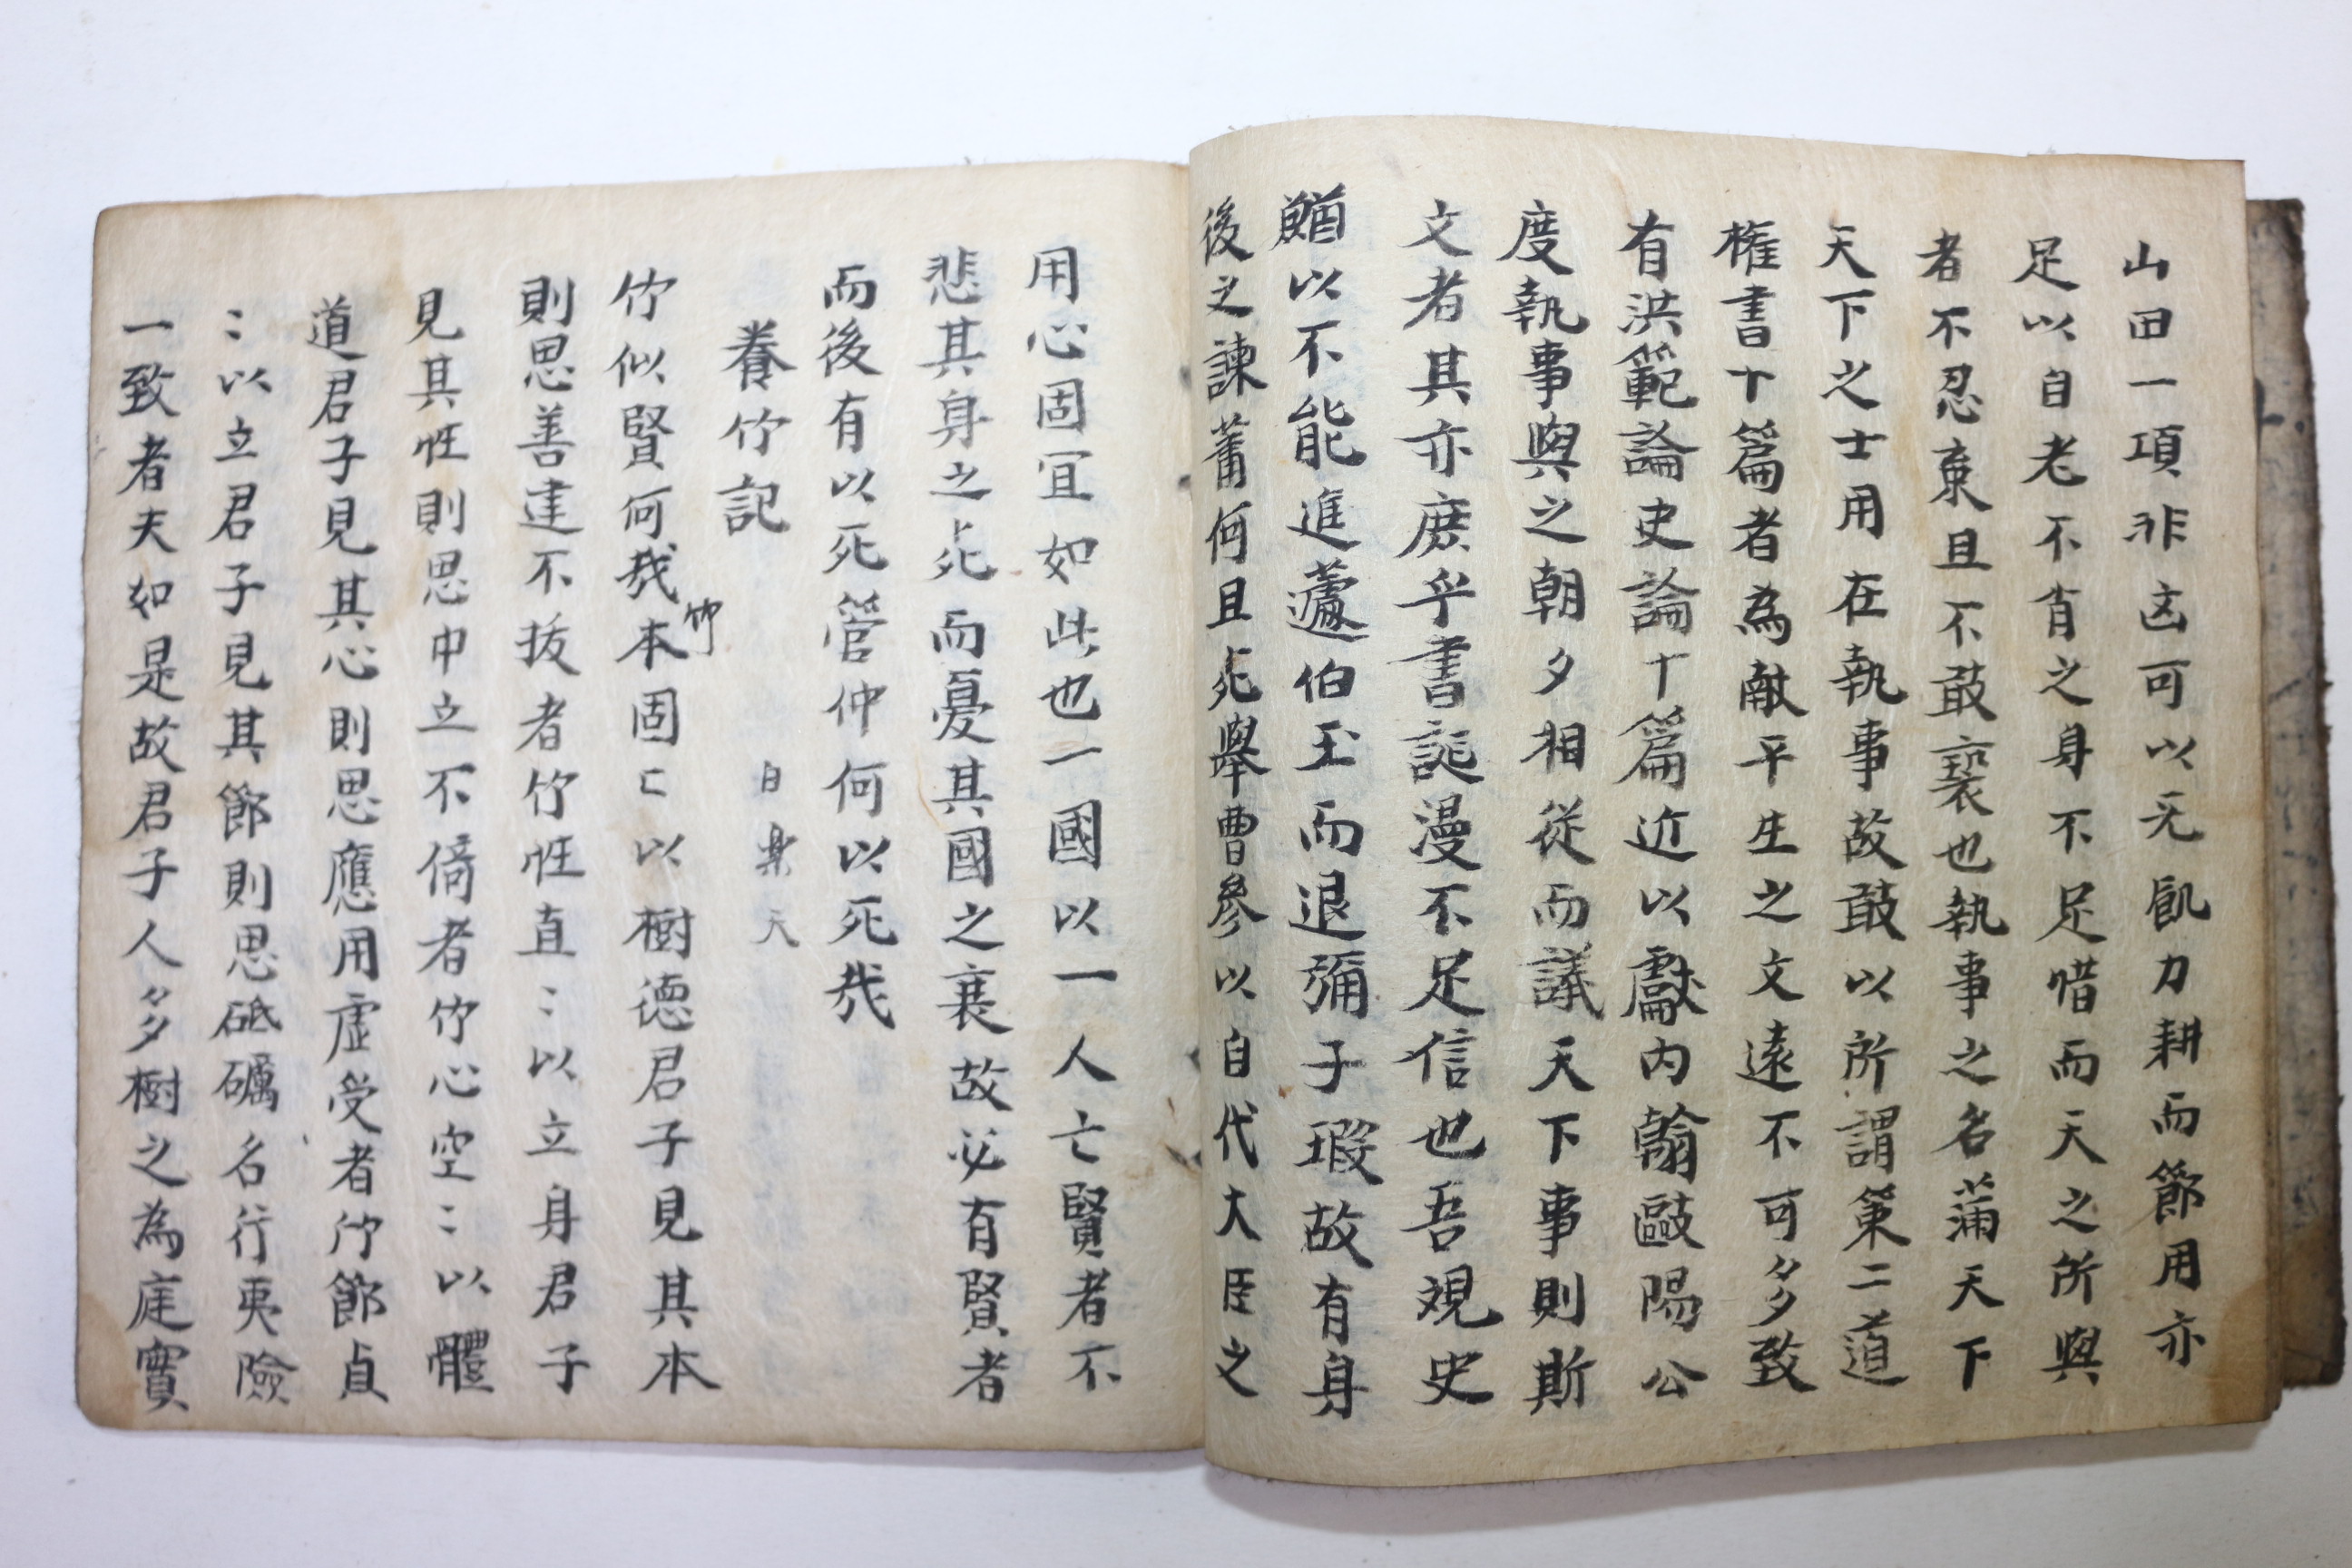 山田一項非凶可以无飢力耕而節用亦
足以自老不肖之身不足惜而天之所與
者不忍棄且不敢褻也執事之名滿天下
天下之士用在執事故敢以所謂策二道
權書十篇者為獻平生之文遠不可多致
有洪範論史論十篇近以獻內翰歐陽公
度執事與之朝夕相從而議天下事則斯
文者其亦庶乎書誕漫不足信也吾觀史
鰌以不能進蘧伯玉而退彌子瑕故有身
後之諫蕭何且死舉曹參以自代大臣之
用心固宜如此也一國以一人亡賢者不
悲其身之死而憂其國之衰故必有賢者
而後有以死管仲何以死哉
養竹記 白樂天
竹似賢何哉竹本固〻以樹德君子見其本
則思善建不拔者竹性直〻以立身君子
見其性則思中立不倚者竹心空〻以體
道君子見其心則思應用虛受者竹節貞
〻以立君子見其節則思砥礪名行夷險
一致者夫如是故君子人多樹之為庭實